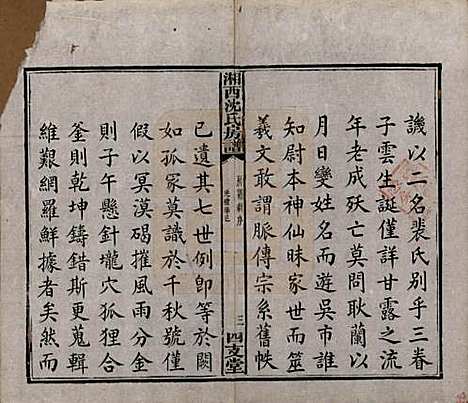 譏以二名裴氏別乎三眷
子雲生誕僅詳甘露之流
年老成殀亡莫問耿蘭以
月日變姓名而遊吳市誰
知尉本神仙昧家世而筮
羲文敢謂脈傳宗系舊帙
湘西沈氏房譜
三
四支堂
已遺其七世例即等於闕
如孤冢莫識於千秋號僅
假以冥漠碣摧風雨分金
則子午懸針壠穴狐狸合
釜則乾坤鑄錯斯更蒐輯
維艱網羅鮮據者矣然而